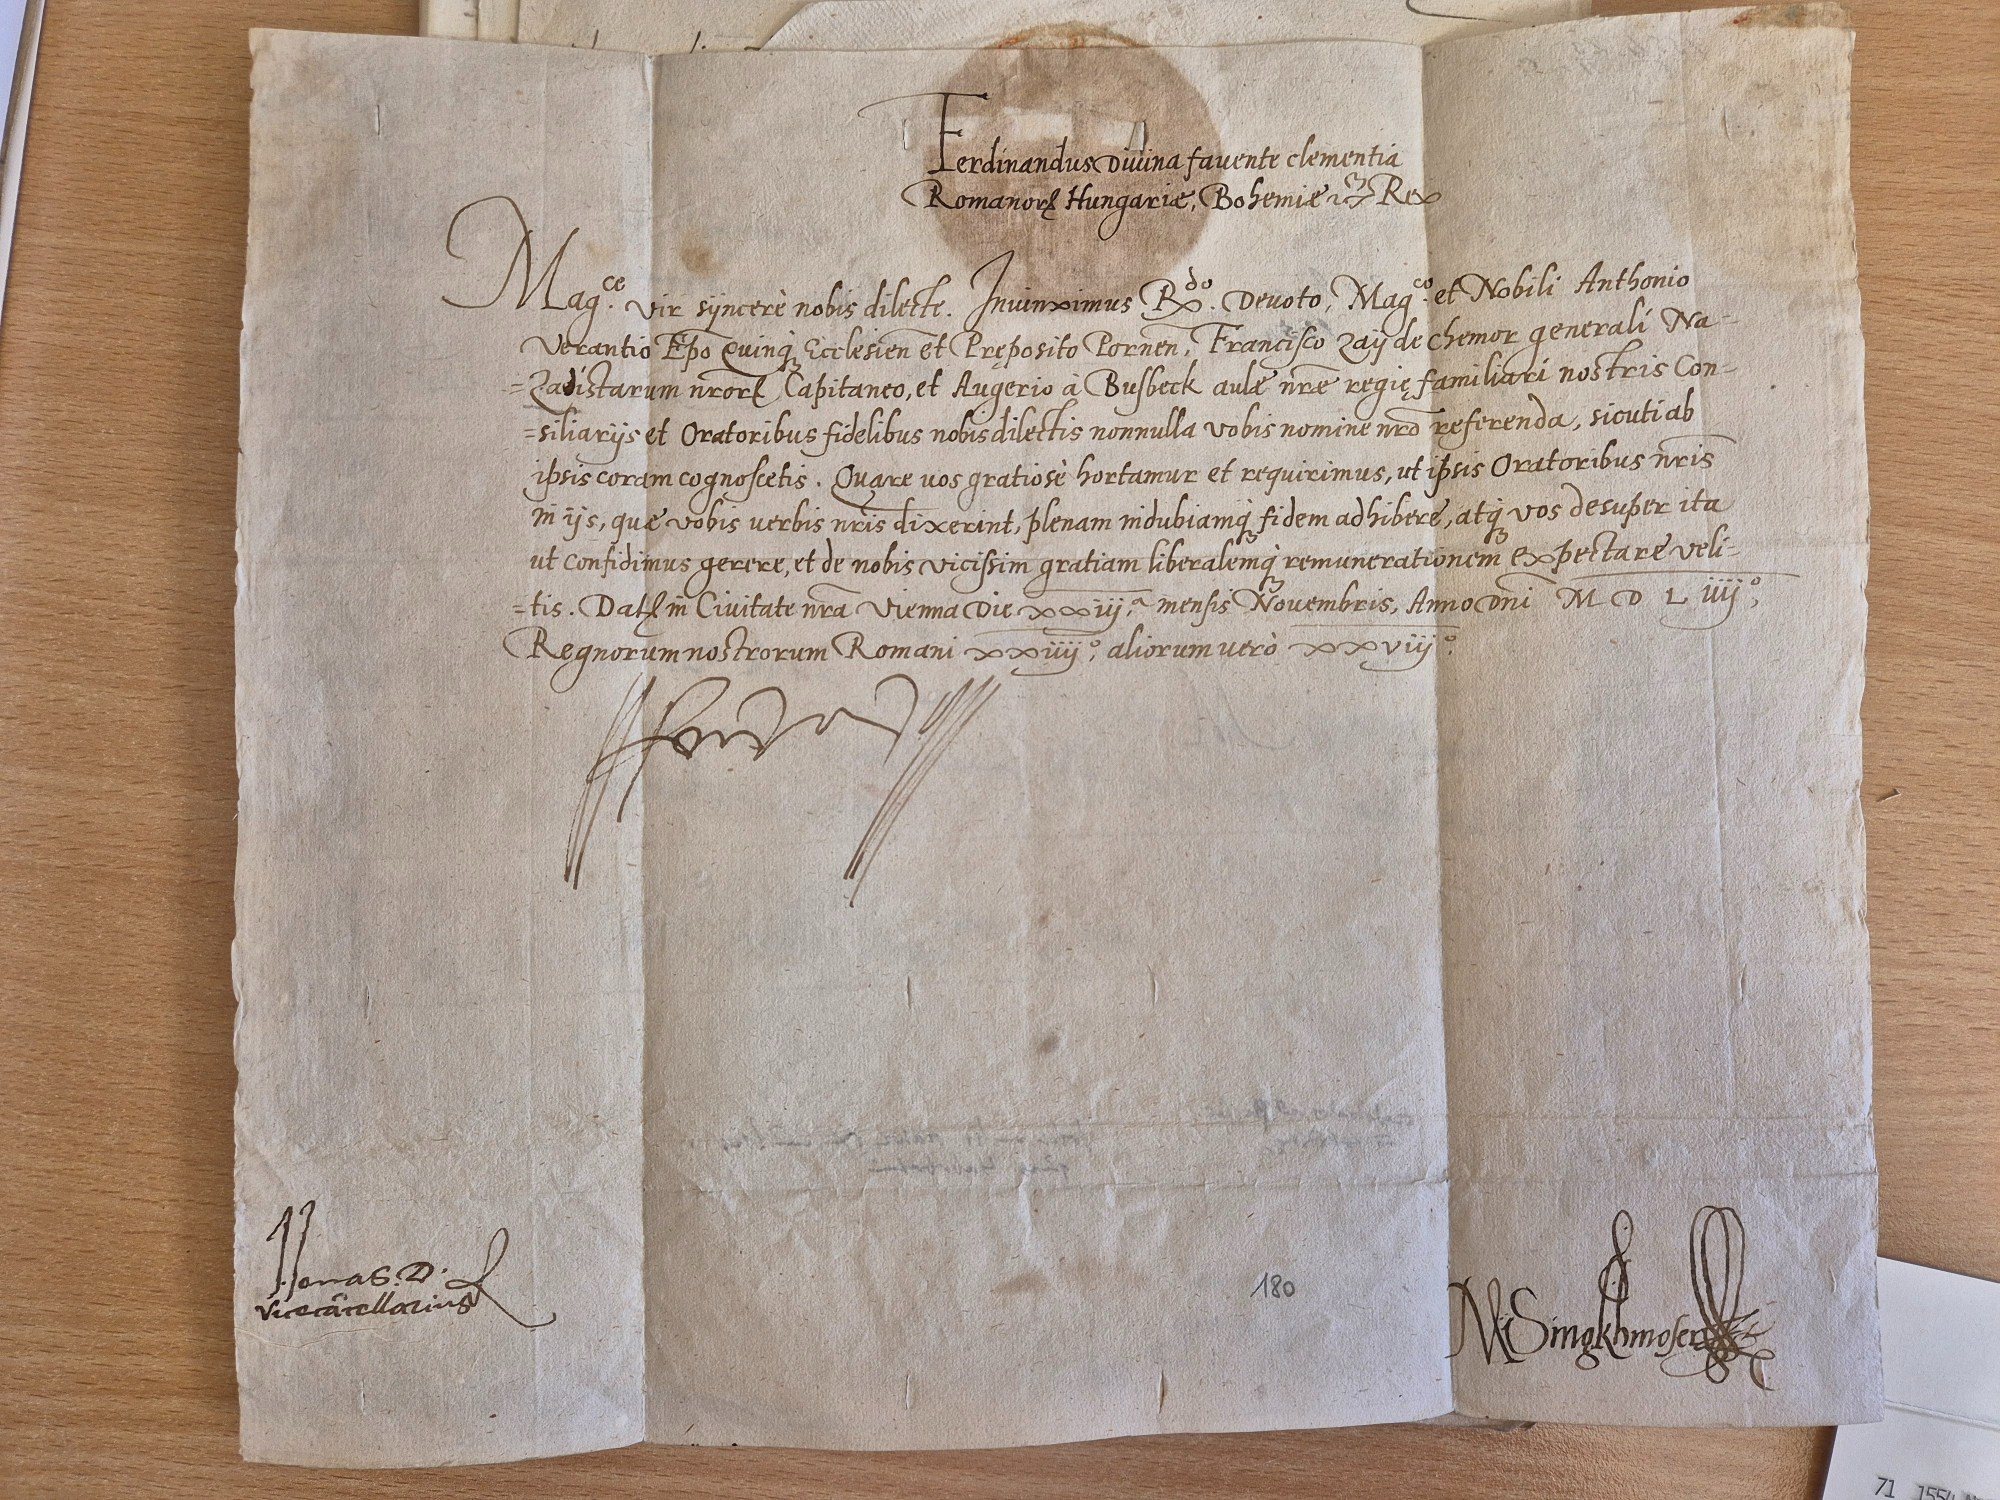 Ferdinandus Divina favente clementia
Romanorꝝ Hungariæ, Bohemiæ ꝛcꝫ Rex
Mag.ce vir syncerè nobis dilecte. Iniunximus R.do Devoto, Mag.co et Nobili Anthonio
Verantio Ep̄o Quinqꝫ Ecclesien̄ et Pręposito Pornen̄, Francisco Zay de Chemor generali Na-
=zadistarum nr̄orꝝ Capitaneo, et Augerio à Busbeck aulæ nr̄e regię familiari nostris Con-
=siliarijs et Oratoribus fidelibus nobis dilectis nonnulla vobis nomine nr̄o referenda, sicuti ab
ipsis coram cognoscetis. Quare vos gratiosè hortamur et requirimus, ut ipsis Oratoribus nr̄is
in ijs, quæ vobis verbis nr̄is dixerint, plenam indubiamqꝫ fidem adhibere, atqꝫ vos desuper ita
ut confidimus gerere, et de nobis vicissim gratiam liberalemqꝫ remunerationem expectare veli-
=tis. Datꝝ in Civitate nr̄a Vienna Die xxiij.a mensis Novembris, Anno Dn̄i M D L iiij.o,
Regnorum nostrorum Romani xxiiij.o, aliorum verò xxviij.o.
Jonas. D.
vicecan̄cellarius
180
M Singkhmoser
71 1554